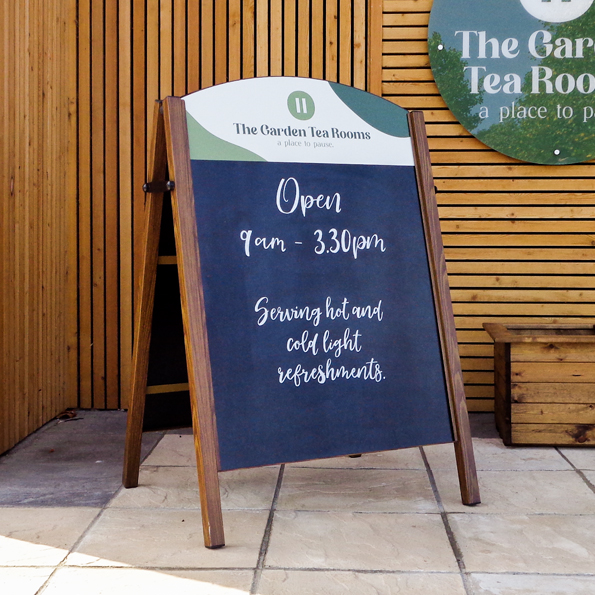 The Garden Tea Rooms
a place to pause.
Open
9am - 3.30pm
Serving hot and
cold light
refreshments.
The Gar
Tea Roo
a place to p